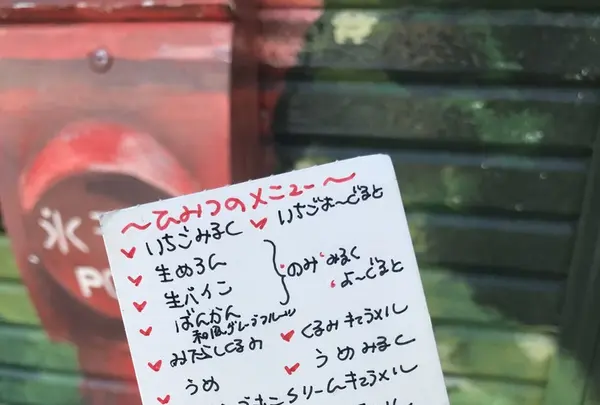 ～ひみつのメニュー～
いちごみるく
いちごよ～ぐると
生めろん
生パイン
ばんかん
和風グレープフルーツ
のみ
みるく
よ～ぐると
みぞらしくるみ
くるみキャラメル
うめ
うめみるく
クリームキャラメル
氷
PO